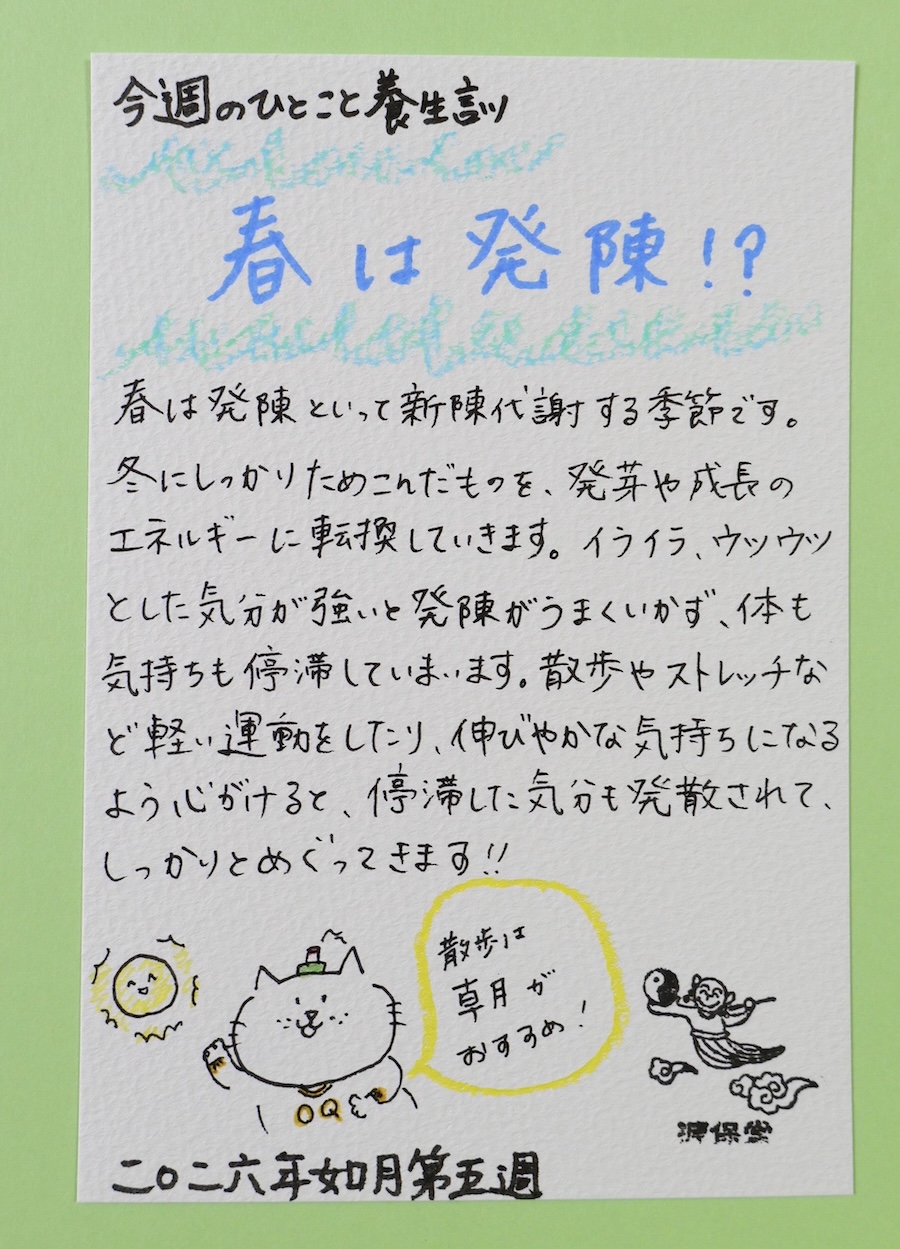 今週のひとこと養生訓
春は発陳!?
春は発陳といって新陳代謝する季節です。
冬にしっかりためこんだものを、発芽や成長の
エネルギーに転換していきます。イライラ、ウツウツ
とした気分が強いと発陳がうまくいかず、体も
気持ちも停滞してしまいます。散歩やストレッチな
ど軽い運動をしたり、伸びやかな気持ちになる
よう心がけると、停滞した気分も発散されて、
しっかりとめぐってきます!!
散歩は
朝が
おすすめ!
保堂
二〇二六年如月第五週